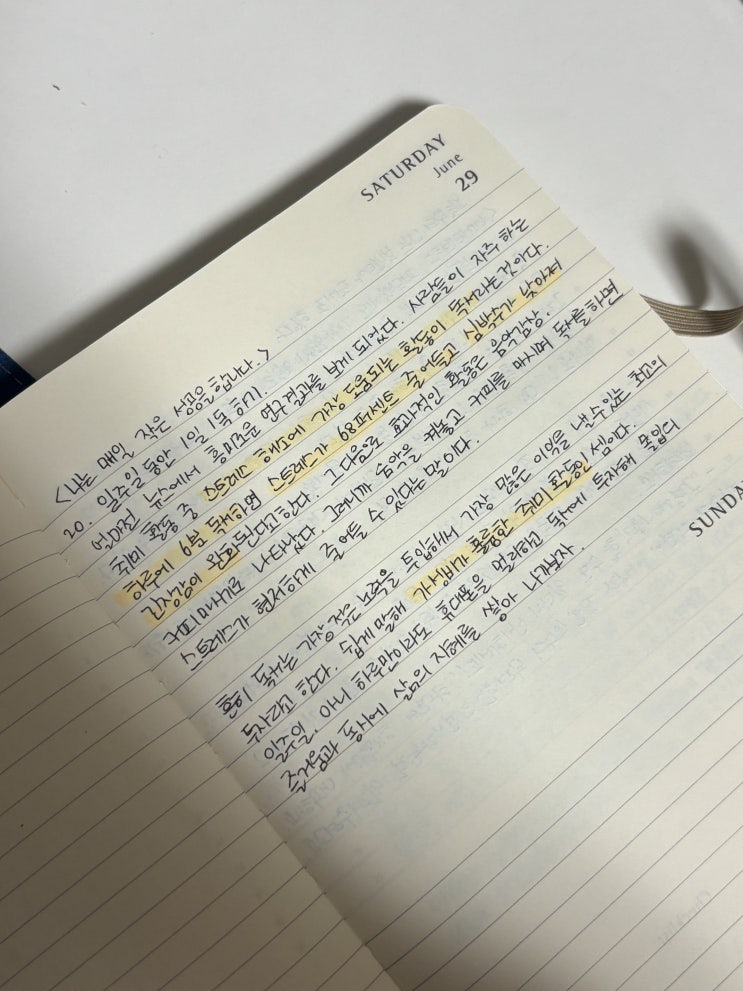 SATURDAY
June
29
<나는 매일 작은 성공을 합니다.>
20. 일주일 동안 1일 1독 하기.
얼마전 뉴스에서 흥미로운 연구결과를 보게 되었다. 사람들이 자주 하는
취미 활동 중 스트레스 해소에 가장 도움되는 활동이 독서라는 것이다.
하루에 6분 독서하면 스트레스가 68퍼센트 줄어들고 심박수가 낮아져
긴장감이 완화된다고 한다. 그 다음으로 효과적인 활동은 음악감상,
커피마시기로 나타났다. 그러니까 음악을 켜놓고 커피를 마시며 독서를 하면
스트레스가 현저하게 줄어들 수 있다는 말이다.
흔히 독서는 가장 적은 노력을 투입해서 가장 많은 이익을 낼 수 있는 최고의
투자라고 한다. 쉽게 말해 가성비가 훌륭한 취미 활동인 셈이다.
일주일, 아니 하루만이라도 휴대폰을 멀리하고 독서에 투자해 몰입의
즐거움과 동시에 삶의 지혜를 쌓아 나가보자.
SUNDA
Checklist